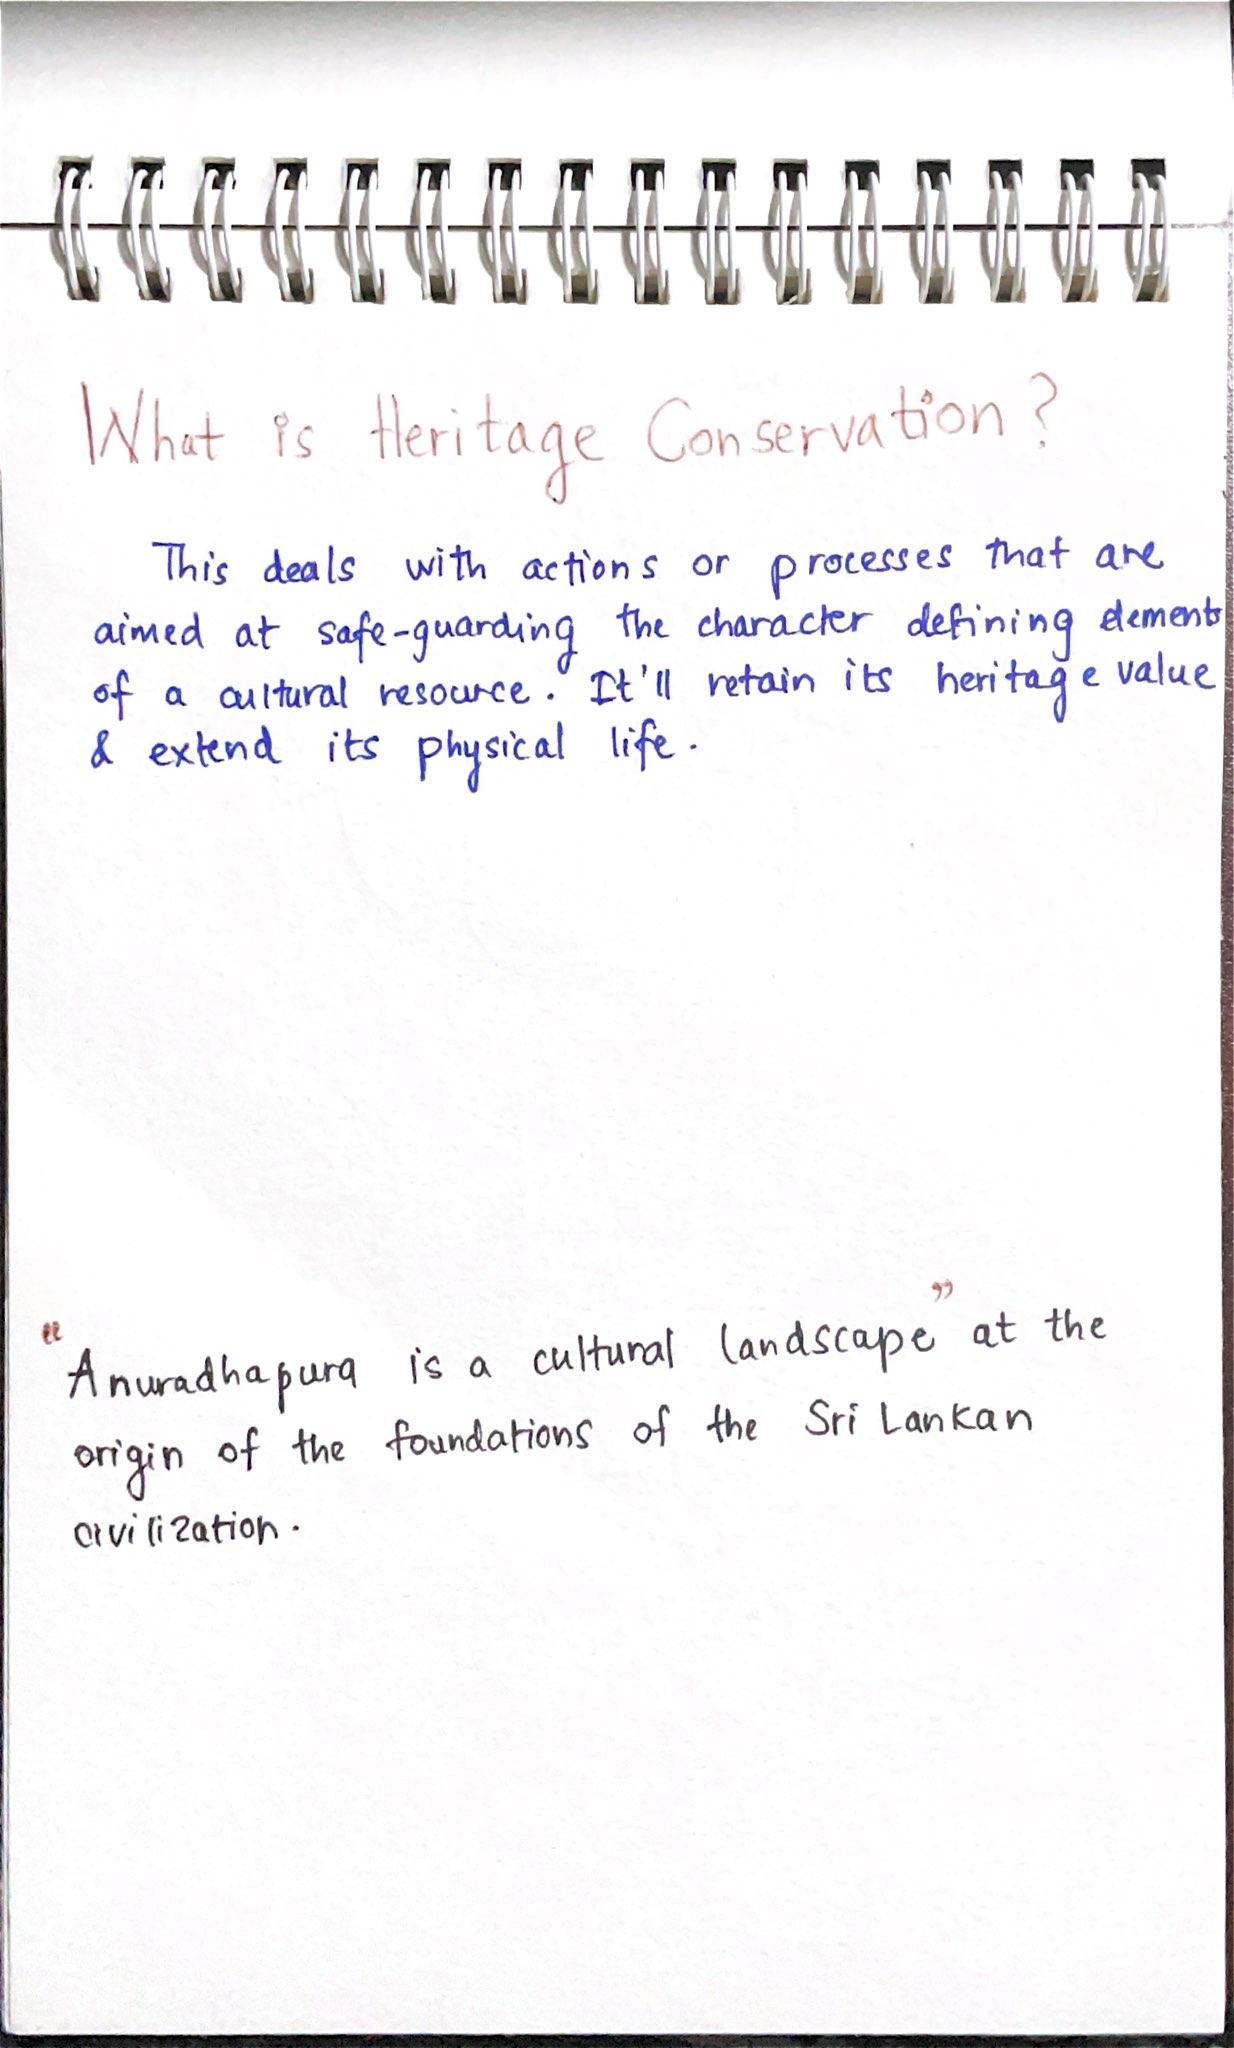 What is Heritage Conservation?
This deals with actions or processes that are
aimed at safe-guarding the character defining elements
of a cultural resource. It'll retain its heritage value
& extend its physical life.
"Anuradhapura is a cultural landscape" at the
origin of the foundations of the Sri Lankan
civilization.